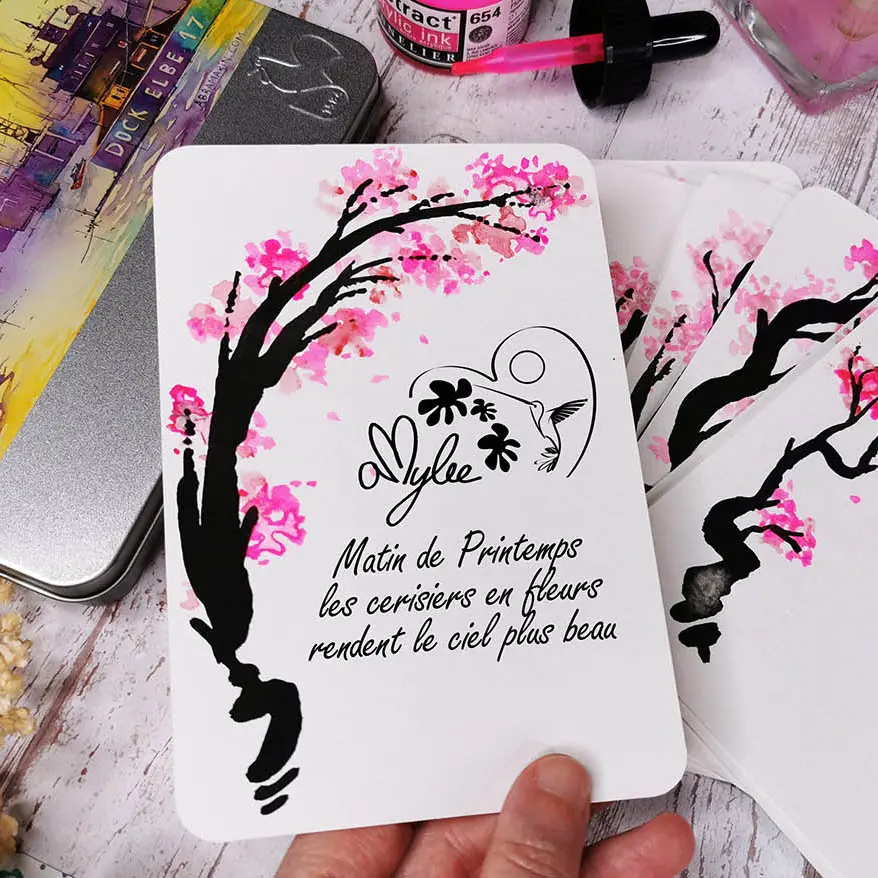 DOCK ELBE 17
ABRAMAWN.COM
654
aMylee
Matin de Printemps
les cerisiers en fleurs
rendent le ciel plus beau